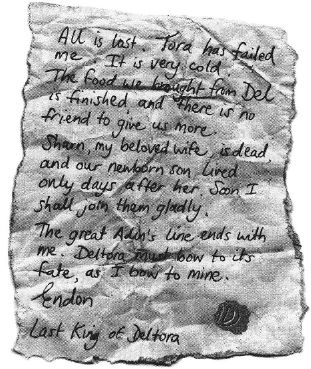 All is lost. Tora has failed
me. It is very cold.
The food we brought from Del
is finished and there is no
friend to give us more.
Sharn, my beloved wife, is dead,
and our newborn son lived
only days after her. Soon I
shall join them gladly.
The great Adin's line ends with
me. Deltora must bow to its
fate, as I bow to mine.
Endon
Last King of Deltora
D